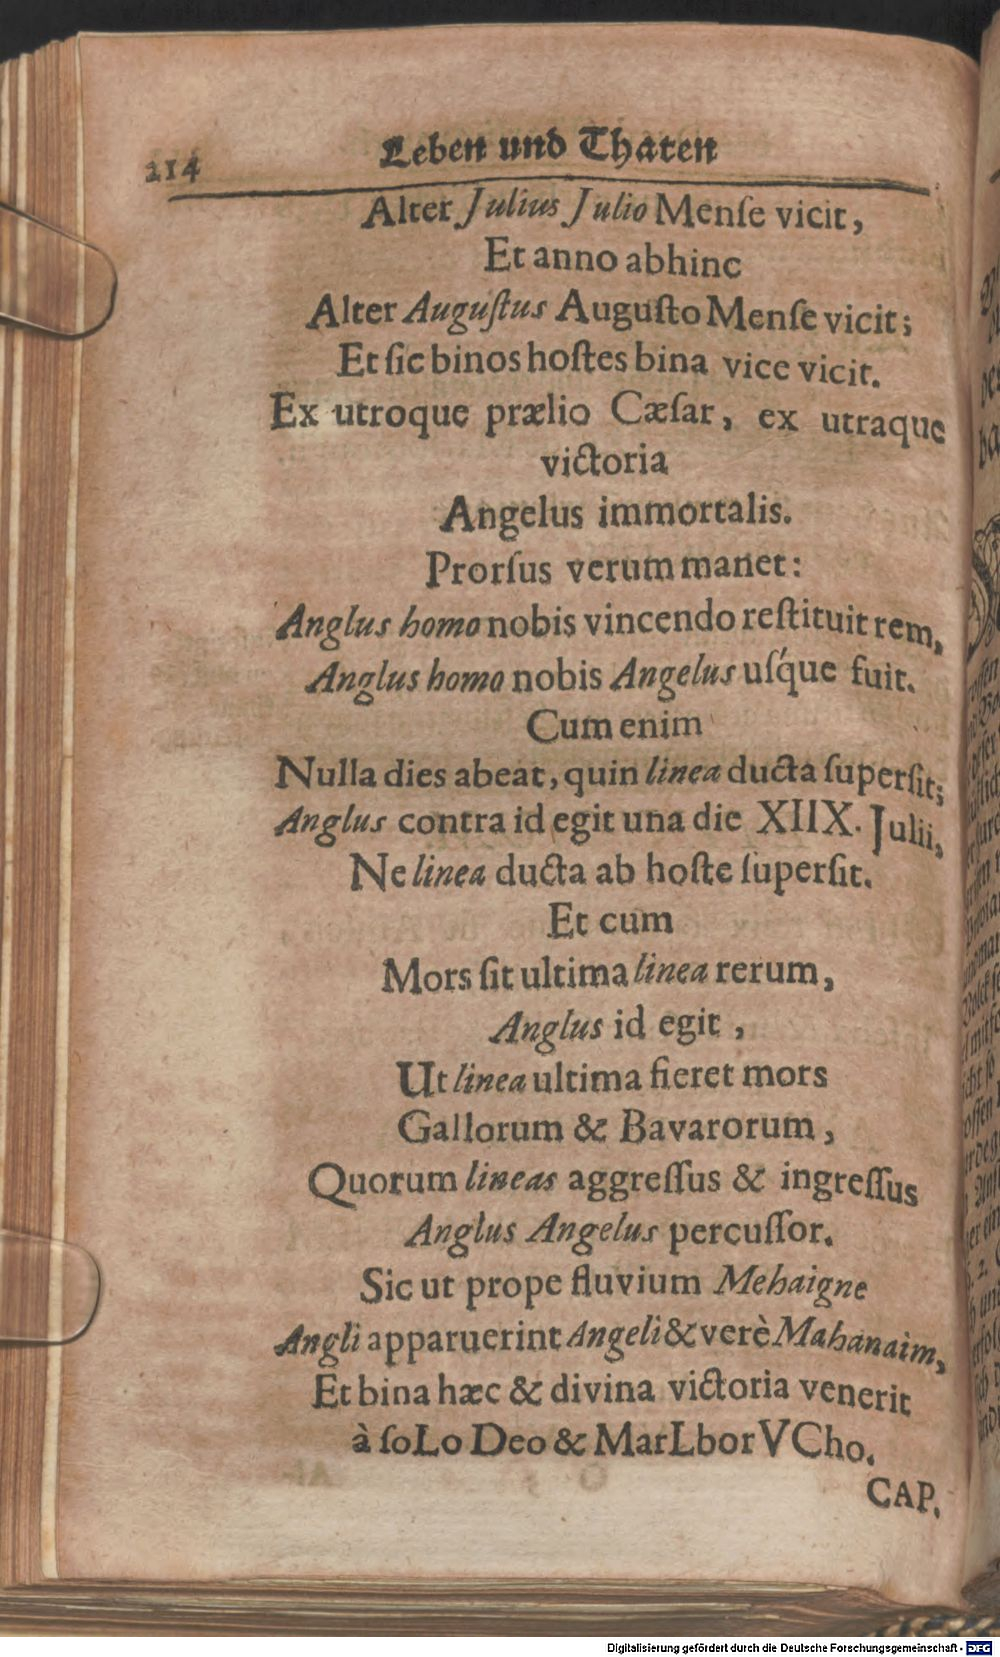 214 Leben und Thaten
Alter Julius Julio Menſe vicit,
Et anno abhinc
Alter Auguſtus Auguſto Menſe vicit;
Et ſic binos hoſtes bina vice vicit.
Ex utroque prælio Cæſar, ex utraque
victoria
Angelus immortalis.
Prorſus verum manet:
Anglus homo nobis vincendo reſtituit rem,
Anglus homo nobis Angelus uſq́ue fuit.
Cum enim
Nulla dies abeat, quin linea ducta ſuperſit;
Anglus contra id egit una die XIIX. Julii,
Ne linea ducta ab hoſte ſuperſit.
Et cum
Mors ſit ultima linea rerum,
Anglus id egit,
Ut linea ultima fieret mors
Gallorum & Bavarorum,
Quorum lineas aggreſſus & ingreſſus
Anglus Angelus percuſſor.
Sic ut prope fluvium Mehaigne
Angli apparuerint Angeli & verè Mahanaim,
Et bina hæc & divina victoria venerit
à ſoLo Deo & MarLborVCho.
CAP.
Digitalisierung gefördert durch die Deutsche Forschungsgemeinschaft - DFG